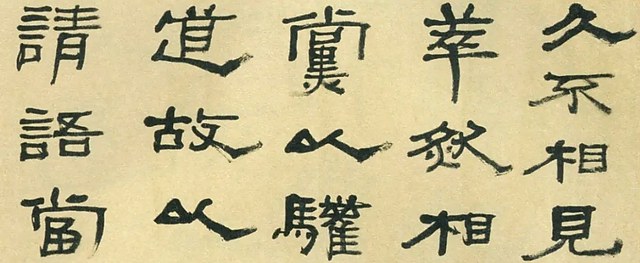 久不相見
萃然相
黨以驩
道故以
請語當